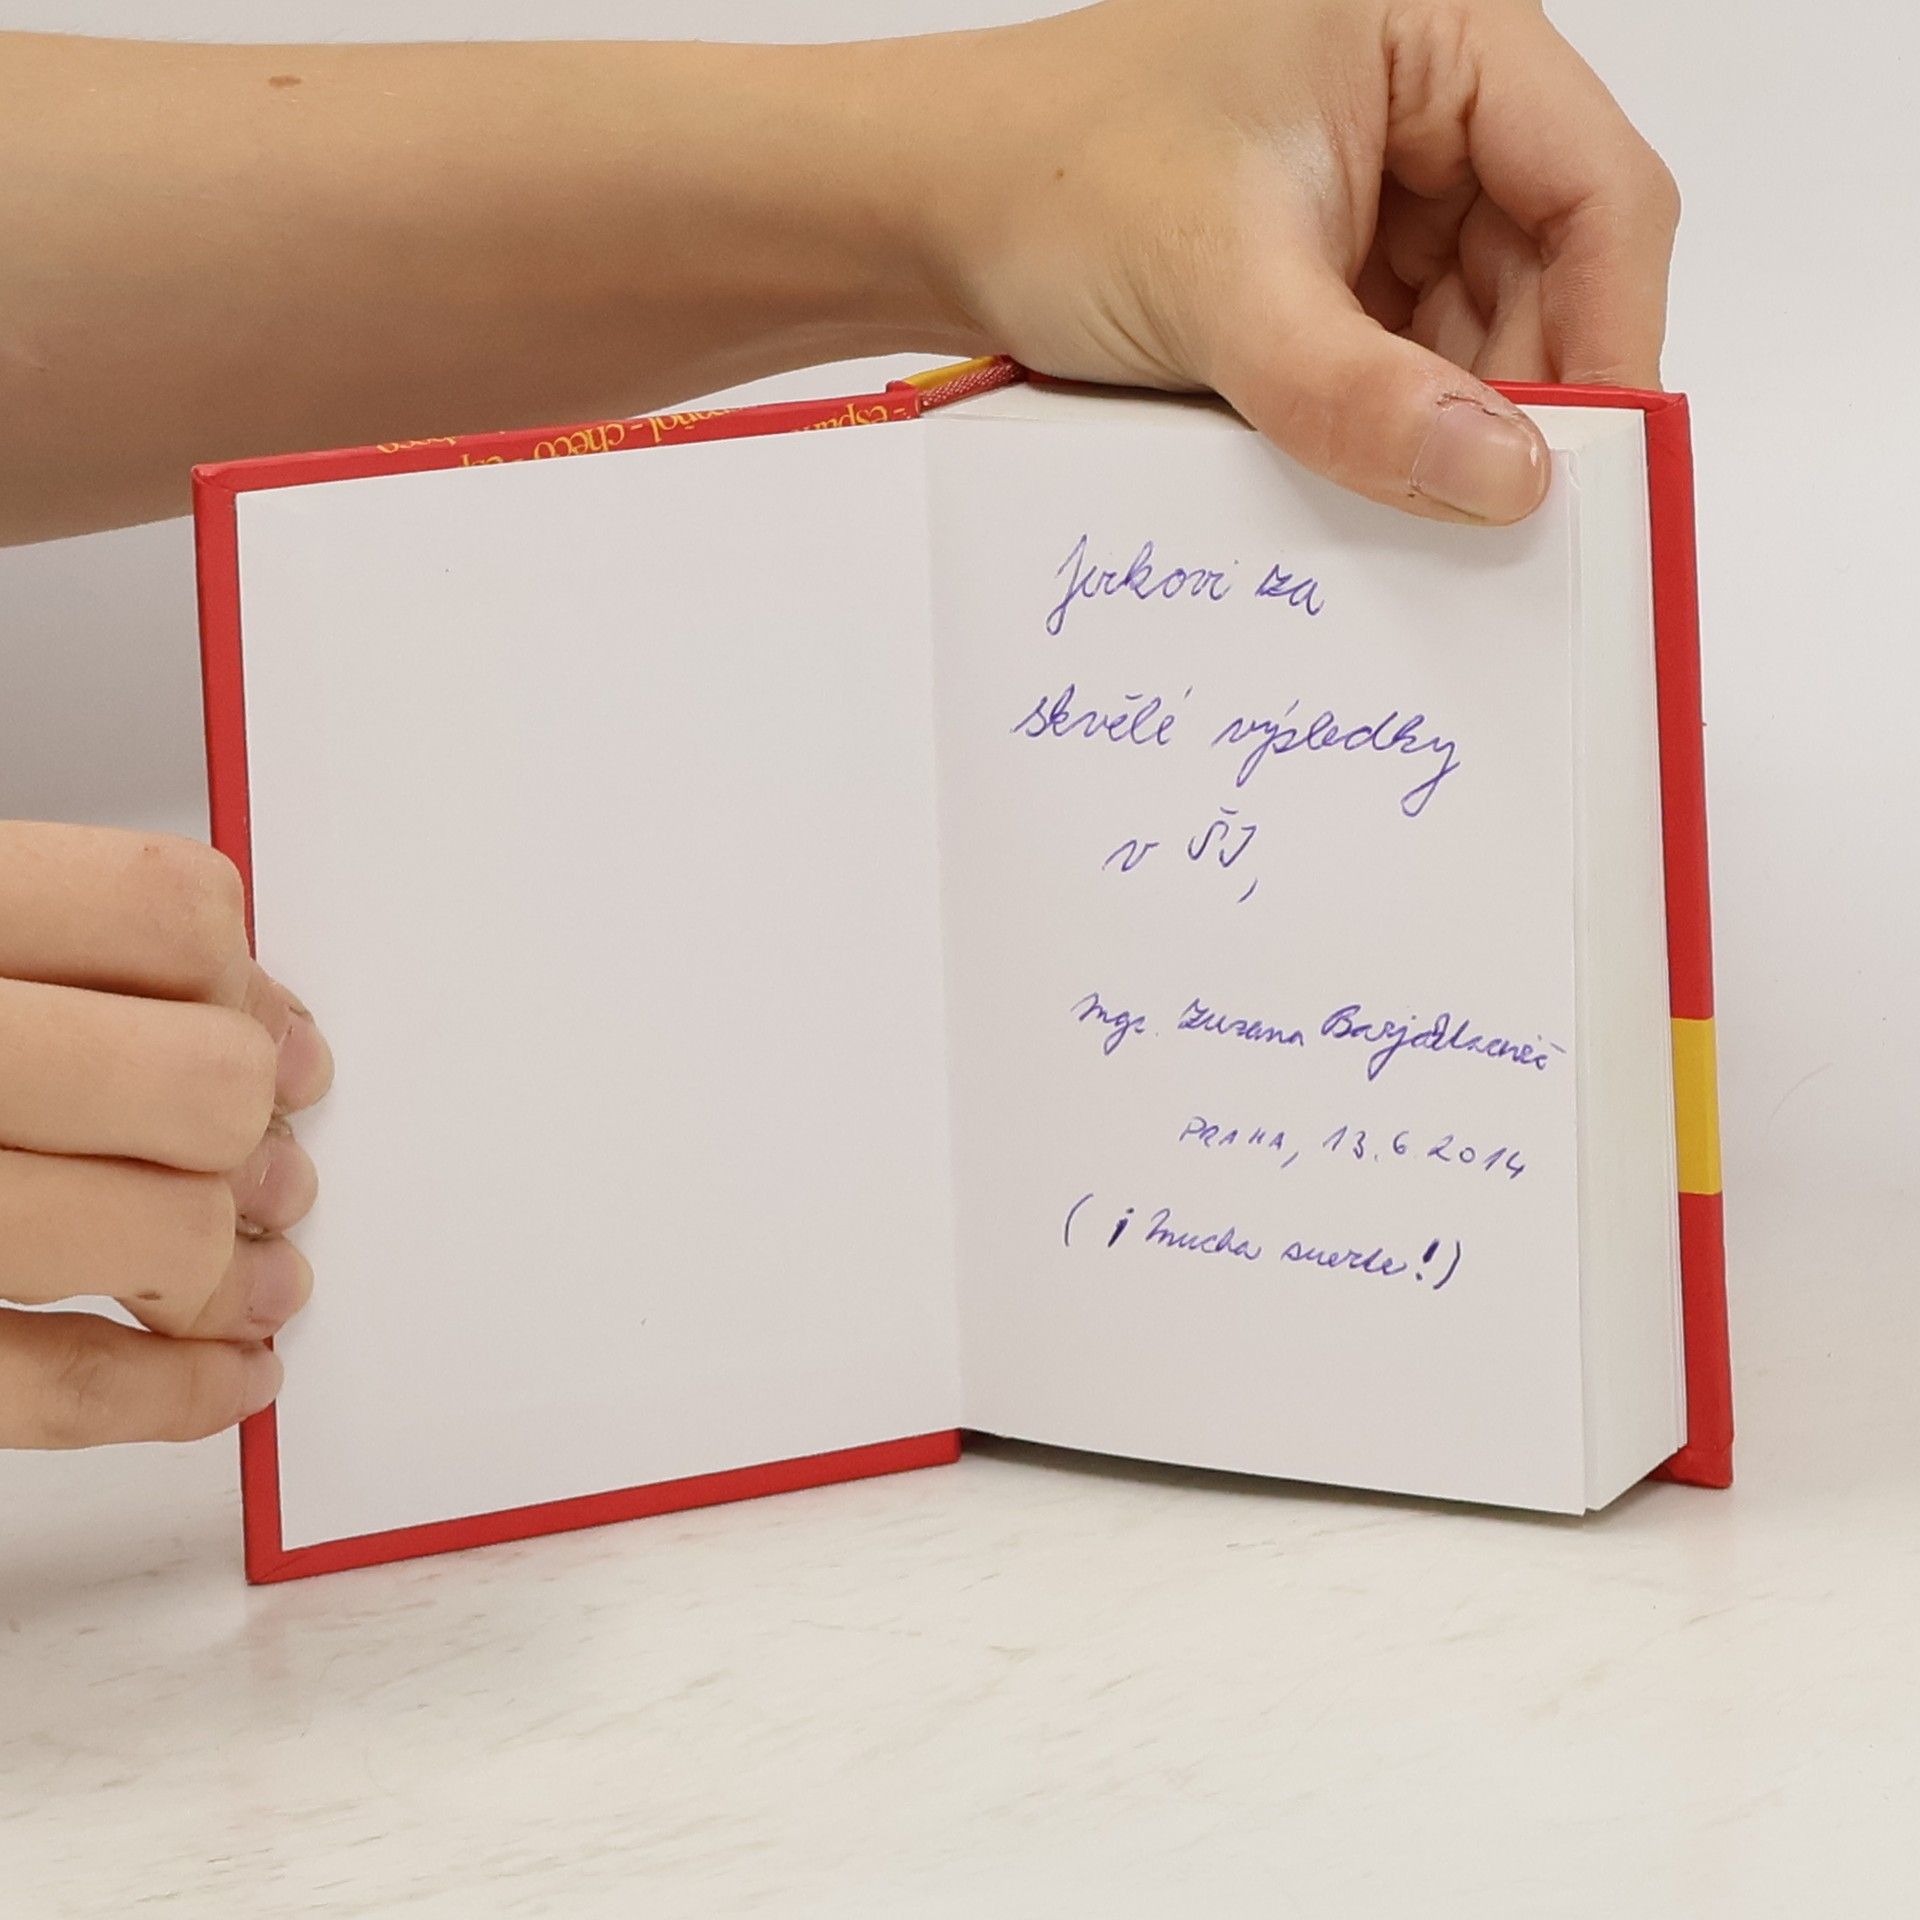 español - checo
Jirkovi za
skvělé výsledky
v ŠJ,
Mgr. Zuzana
PRAHA, 13.6.2014
(¡Mucha suerte!)